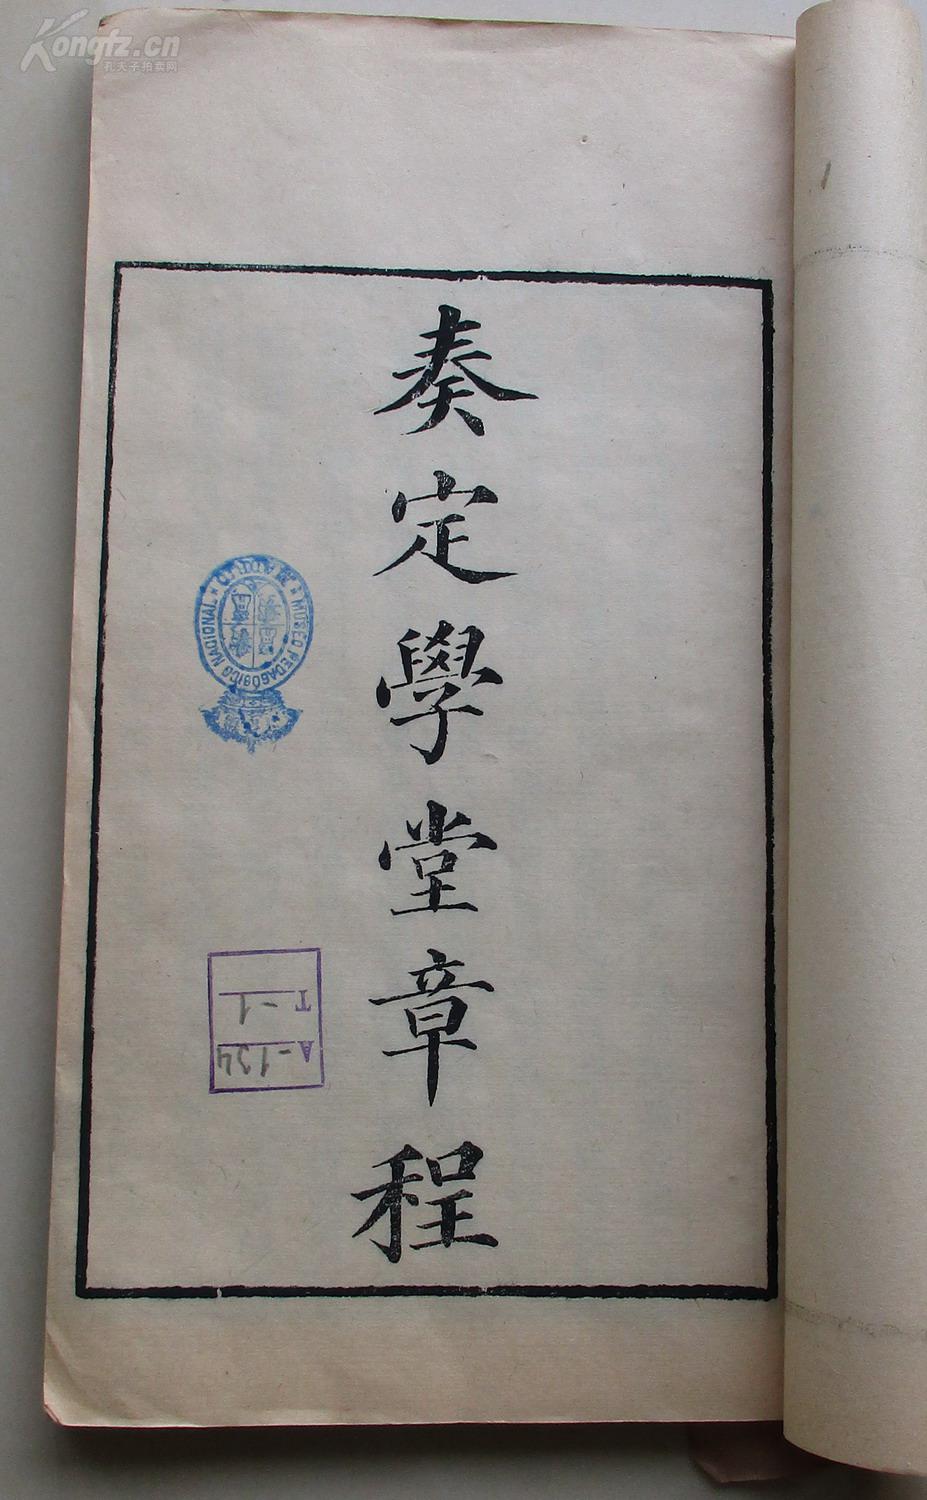 Kongfz.cn
孔夫子拍卖网
奏定學堂章程
MUSEO PEDAGÓGICO NACIONAL
A-134
T-1